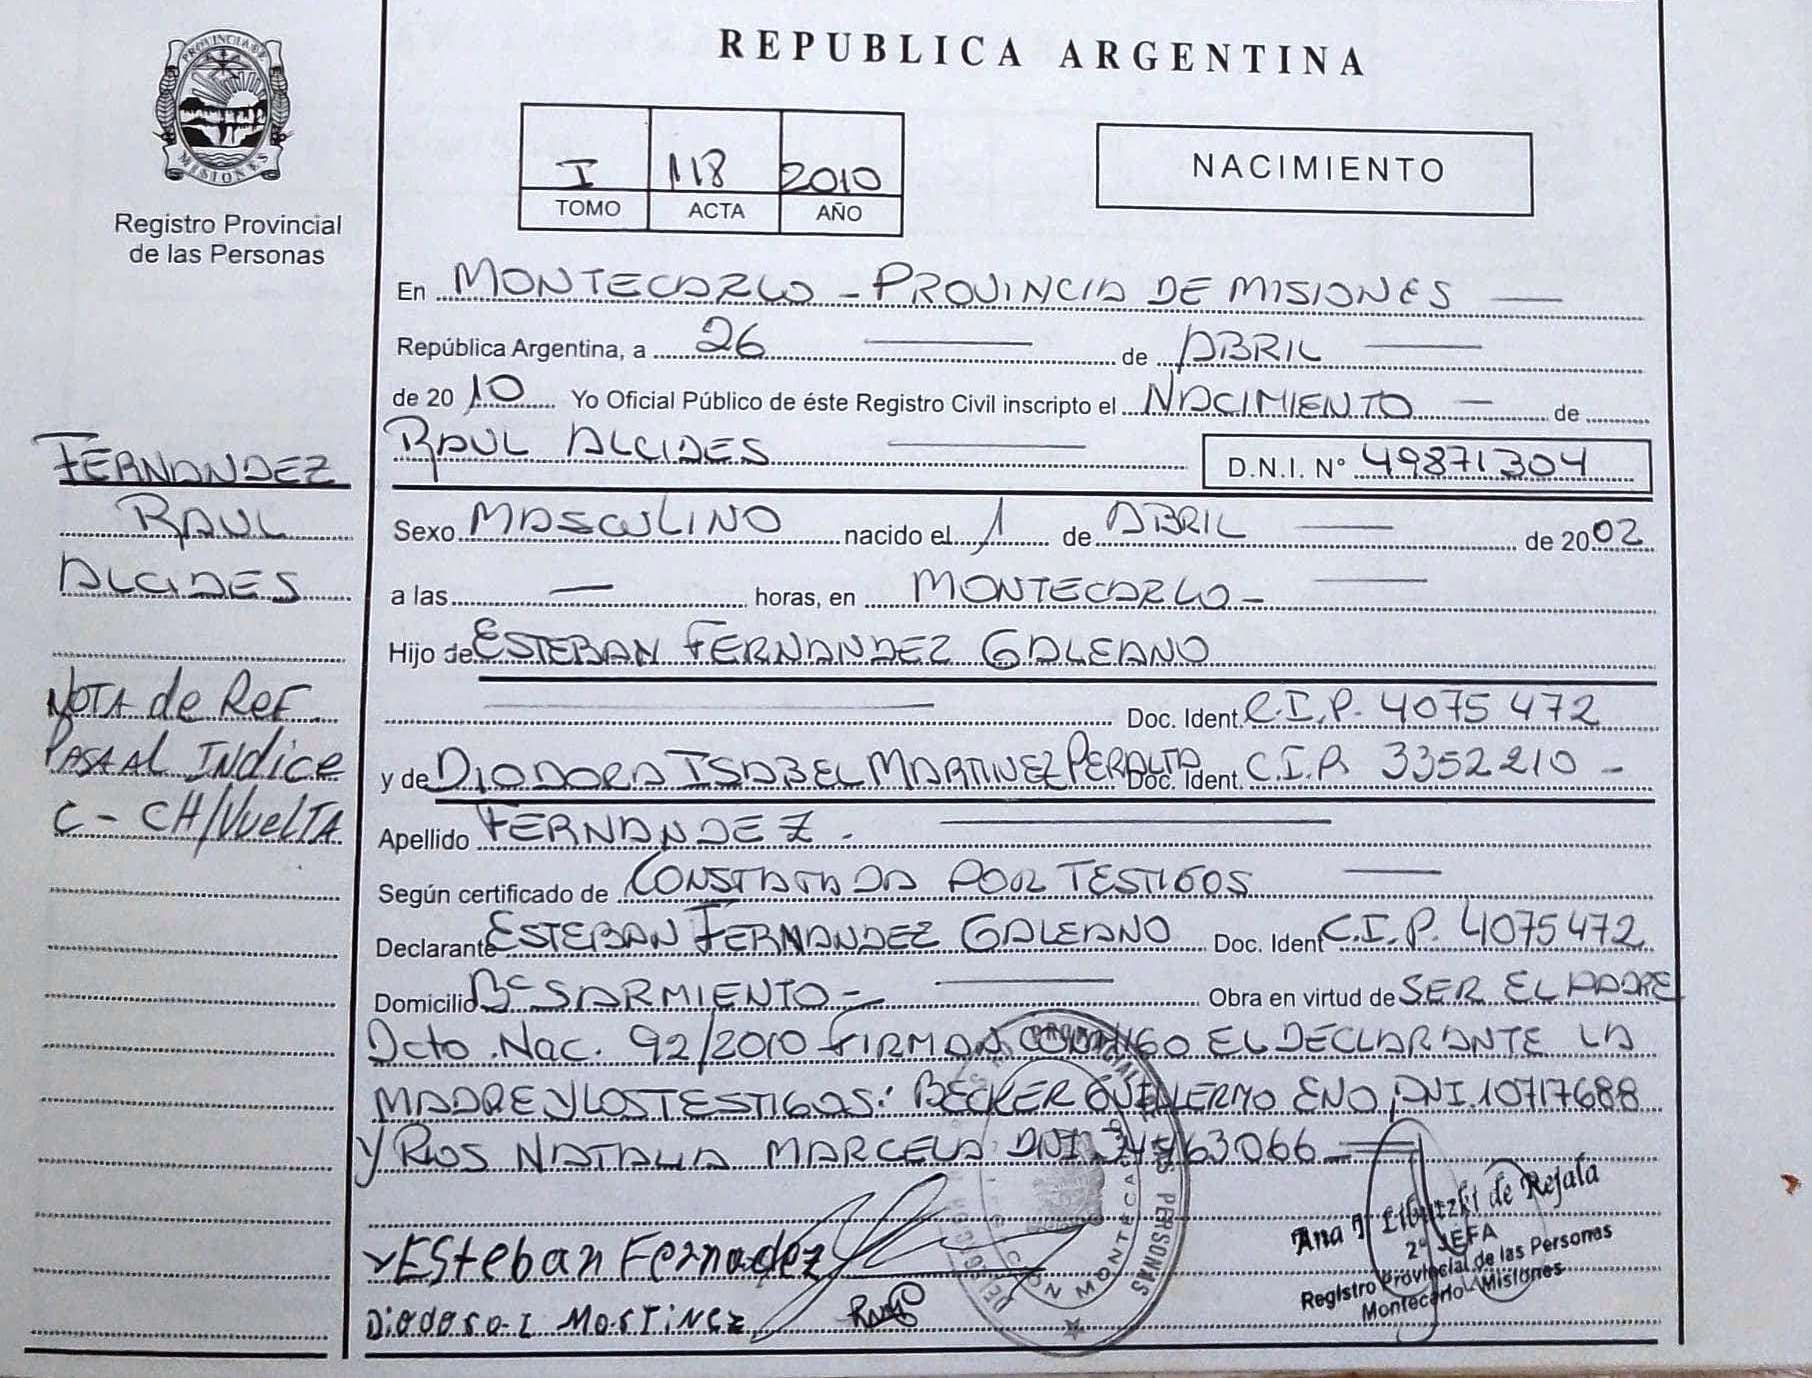 PROVINCIA DE
MISIONES
Registro Provincial
de las Personas
REPUBLICA ARGENTINA
I 118 2010
TOMO ACTA AÑO
NACIMIENTO
En MONTECARLO - PROVINCIA DE MISIONES
República Argentina, a 26 de ABRIL
de 2010 Yo Oficial Público de éste Registro Civil inscripto el NACIMIENTO de
RAUL ALCIDES D.N.I. N° 49871304
Sexo MASCULINO nacido el 1 de ABRIL de 2002
a las — horas, en MONTECARLO -
Hijo de ESTEBAN FERNANDEZ GALEANO
Doc. Ident. C.I.P. 4075472
y de DIODORA ISABEL MARTINEZ PERALTA Doc. Ident. C.I.P. 3352210 -
Apellido FERNANDEZ -
Según certificado de CONSTATADA POR TESTIGOS
Declarante ESTEBAN FERNANDEZ GALEANO Doc. Ident C.I.P. 4075472
Domicilio Bº SARMIENTO - Obra en virtud de SER EL PADRE
Dcto. Nac. 92/2010 FIRMAN CONMIGO EL DECLARANTE LA
MADRE Y LOS TESTIGOS: BECKER GUILLERMO ENO, DNI. 10717688
Y RIOS NATALIA MARCELA DNI 63066
Esteban Fernadez
Diodora I Martinez
Ana de Rejala
2ª JEFA
Registro Provincial de las Personas
Montecarlo - Misiones
PERSONAS
FERNANDEZ
RAUL
ALCIDES
NOTA de REF
PASA AL INDICE
C - CH/VUELTA